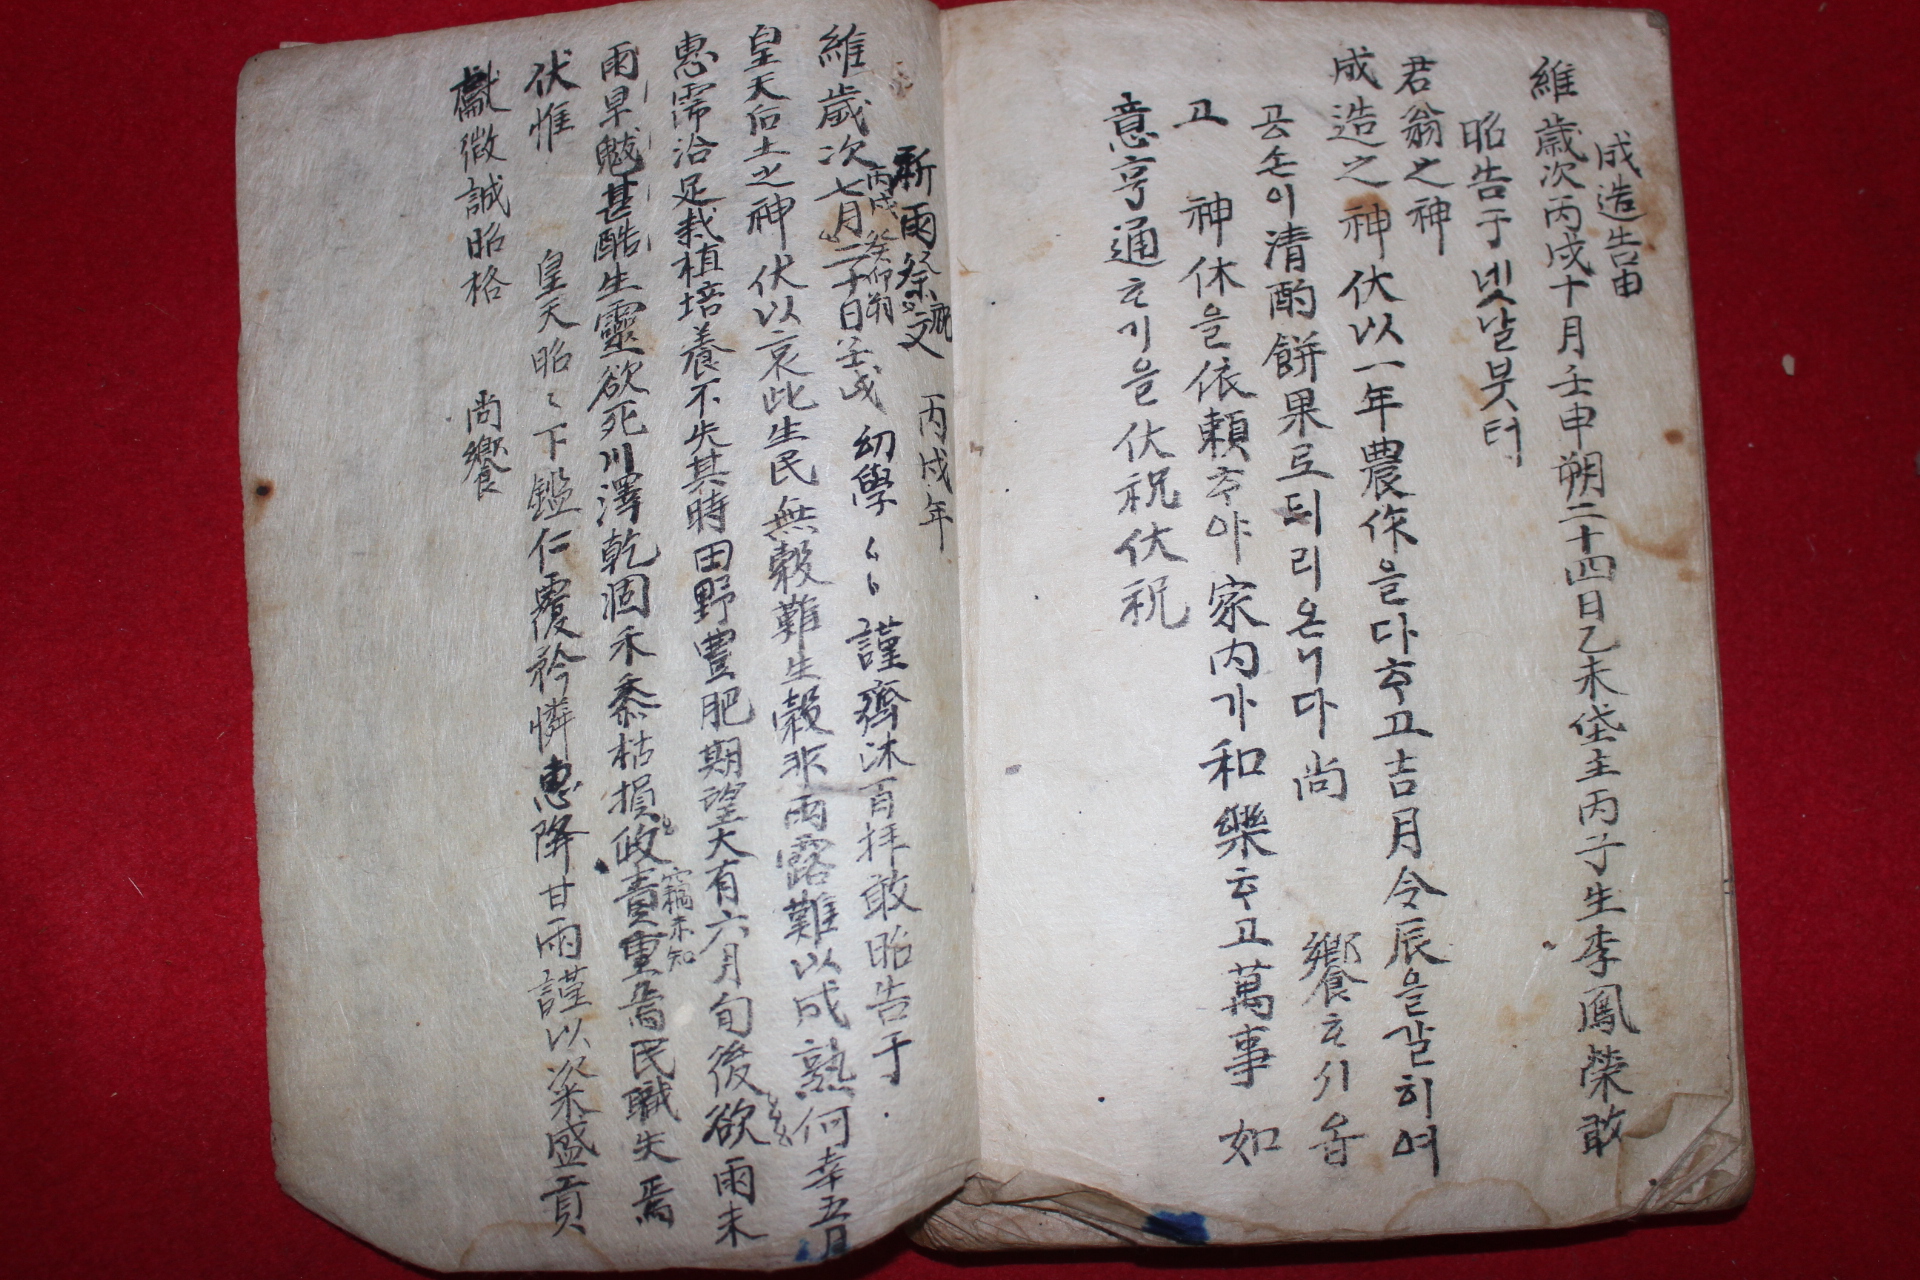 成造告由
維歲次丙戌十月壬申朔二十四日乙未垈主丙子生李鳳榮敢
昭告于녯날붓터
君翁之神
成造之神伏以一年農作을다ᄒᆞ고吉月令辰을갈히여
공손이清酌餅果로듸리온니다尚饗ᄒᆞ시옵
고 神休을依賴ᄒᆞ야家内가和樂ᄒᆞ고萬事如
意亨通ᄒᆞ기을伏祝伏祝
祈雨祭祝文 丙戌年
維歲次丙戌七月癸卯朔二十日壬戌 幼學 謹齊沐百拜敢昭告于
皇天后土之神伏以哀此生民無穀難生穀非雨露難以成熟何幸五月
惠霈洽足栽植培養不失其時田野豊肥期望大有六月旬後欲雨未
雨旱魃甚酷生靈欲死川澤乾涸禾黍枯損竊未知政責重焉民職失焉
伏惟 皇天昭〻下鑑仁覆矜憐惠降甘雨謹以粢盛貢
獻微誠昭格 尚饗